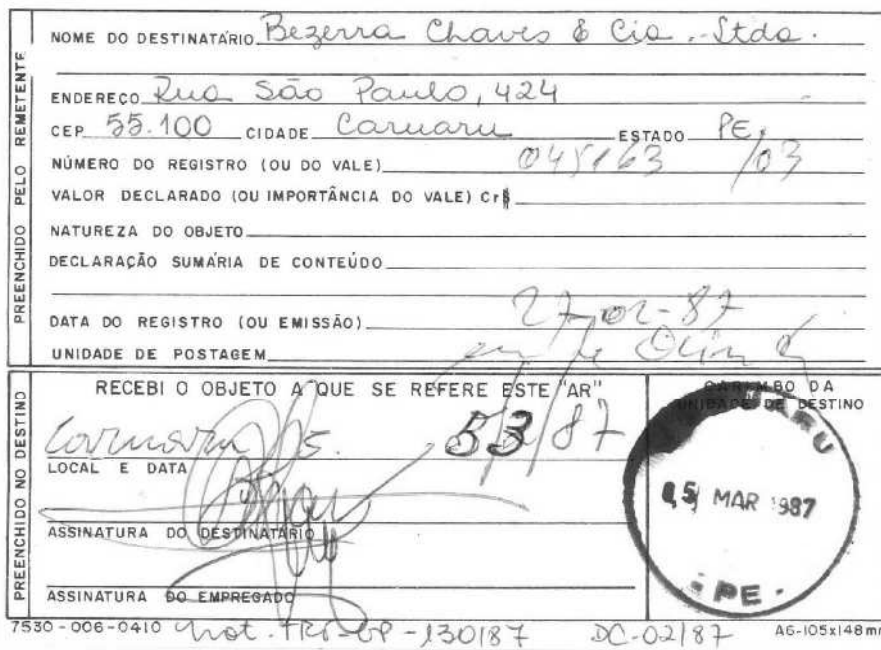 PREENCHIDO PELO REMETENTE
NOME DO DESTINATÁRIO Bezerra Chaves & Cia. Ltda.
ENDEREÇO Rua São Paulo, 424
CEP 55.100 CIDADE Caruaru ESTADO PE.
NÚMERO DO REGISTRO (OU DO VALE) 045163 /03
VALOR DECLARADO (OU IMPORTÂNCIA DO VALE) Cr$
NATUREZA DO OBJETO
DECLARAÇÃO SUMÁRIA DE CONTEÚDO
DATA DO REGISTRO (OU EMISSÃO) 27-02-87
UNIDADE DE POSTAGEM
PREENCHIDO NO DESTINO
RECEBI O OBJETO A QUE SE REFERE ESTE "AR"
CARIMBO DA
UNIDADE DE DESTINO
Caruaru 5/3/87
LOCAL E DATA
05 MAR 1987
ASSINATURA DO DESTINATÁRIO
PE
ASSINATURA DO EMPREGADO
7530-006-0410 Not. TRT-GP-130187 DC-02187 A6-105x148mm